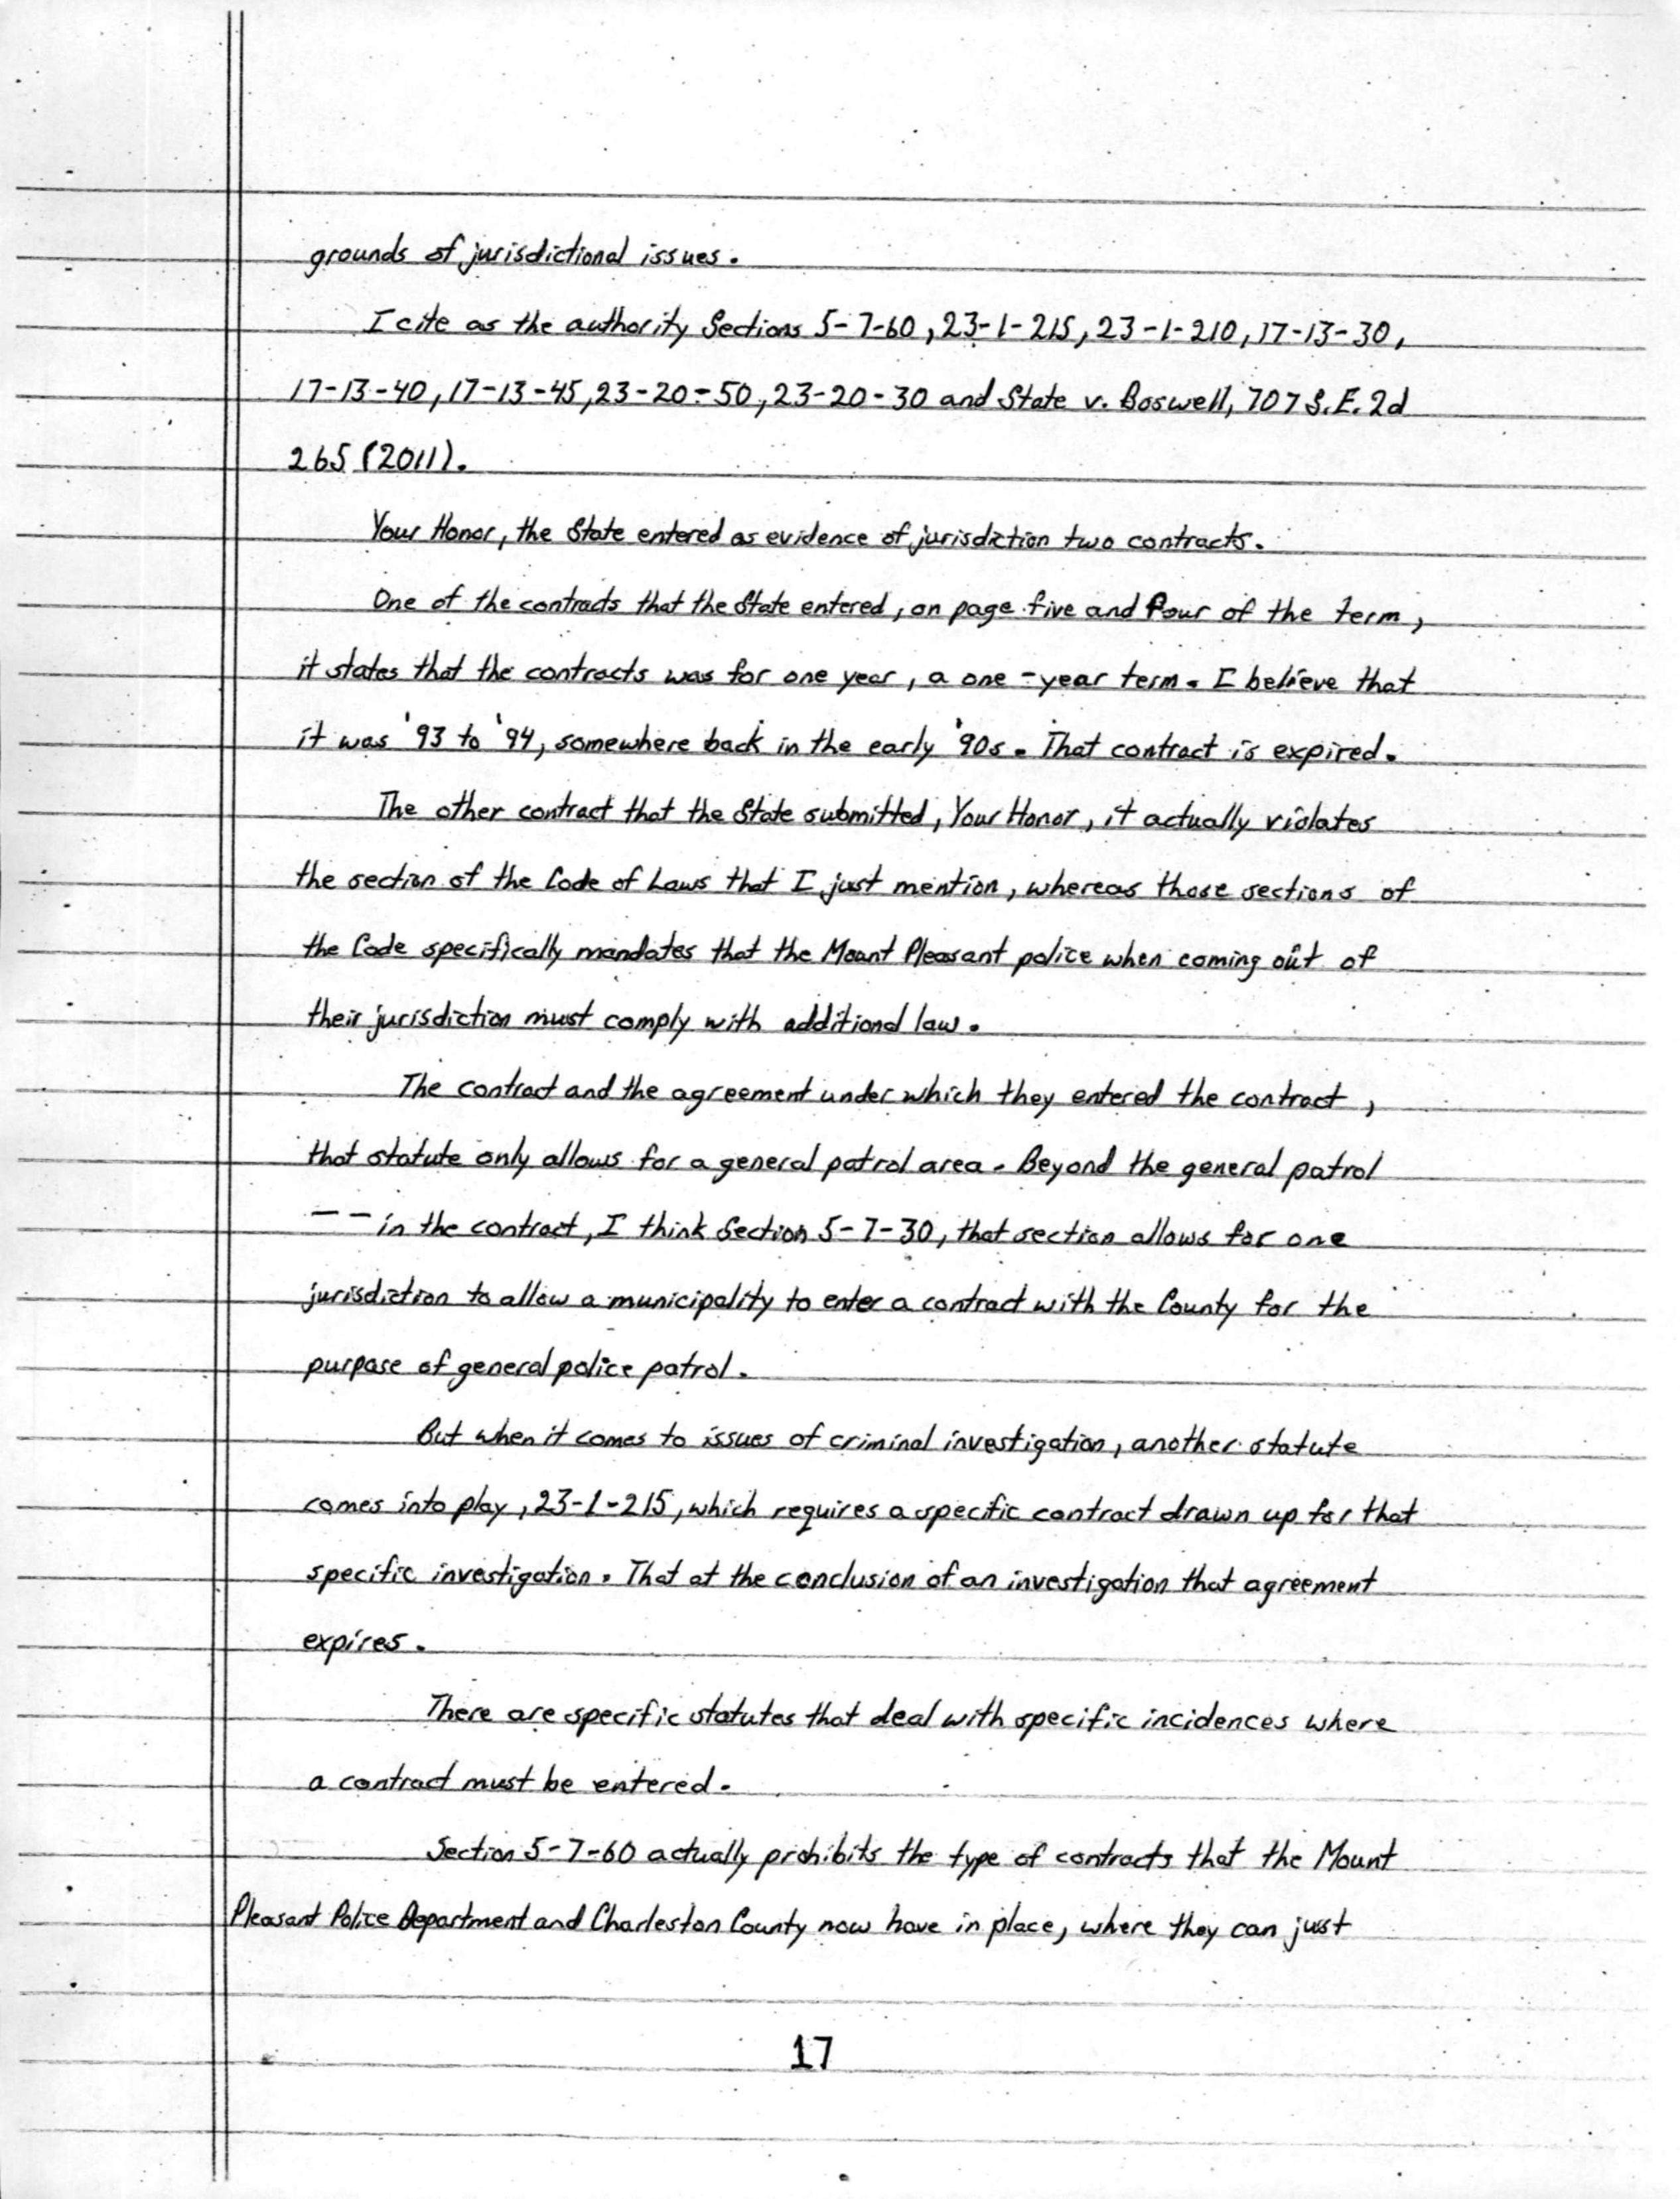 grounds of jurisdictional issues.
I cite as the authority Sections 5-7-60, 23-1-215, 23-1-210, 17-13-30,
17-13-40, 17-13-45, 23-20-50, 23-20-30 and State v. Boswell, 707 S.E. 2d
265 (2011).
Your Honor, the State entered as evidence of jurisdiction two contracts.
One of the contracts that the State entered, on page five and four of the term,
it states that the contracts was for one year, a one-year term. I believe that
it was '93 to '94, somewhere back in the early '90s. That contract is expired.
The other contract that the State submitted, Your Honor, it actually violates
the section of the Code of Laws that I just mention, whereas those sections of
the Code specifically mandates that the Mount Pleasant police when coming out of
their jurisdiction must comply with additional law.
The contract and the agreement under which they entered the contract,
that statute only allows for a general patrol area. Beyond the general patrol
-- in the contract, I think Section 5-7-30, that section allows for one
jurisdiction to allow a municipality to enter a contract with the County for the
purpose of general police patrol.
But when it comes to issues of criminal investigation, another statute
comes into play, 23-1-215, which requires a specific contract drawn up for that
specific investigation. That at the conclusion of an investigation that agreement
expires.
There are specific statutes that deal with specific incidences where
a contract must be entered.
Section 5-7-60 actually prohibits the type of contracts that the Mount
Pleasant Police Department and Charleston County now have in place, where they can just
17